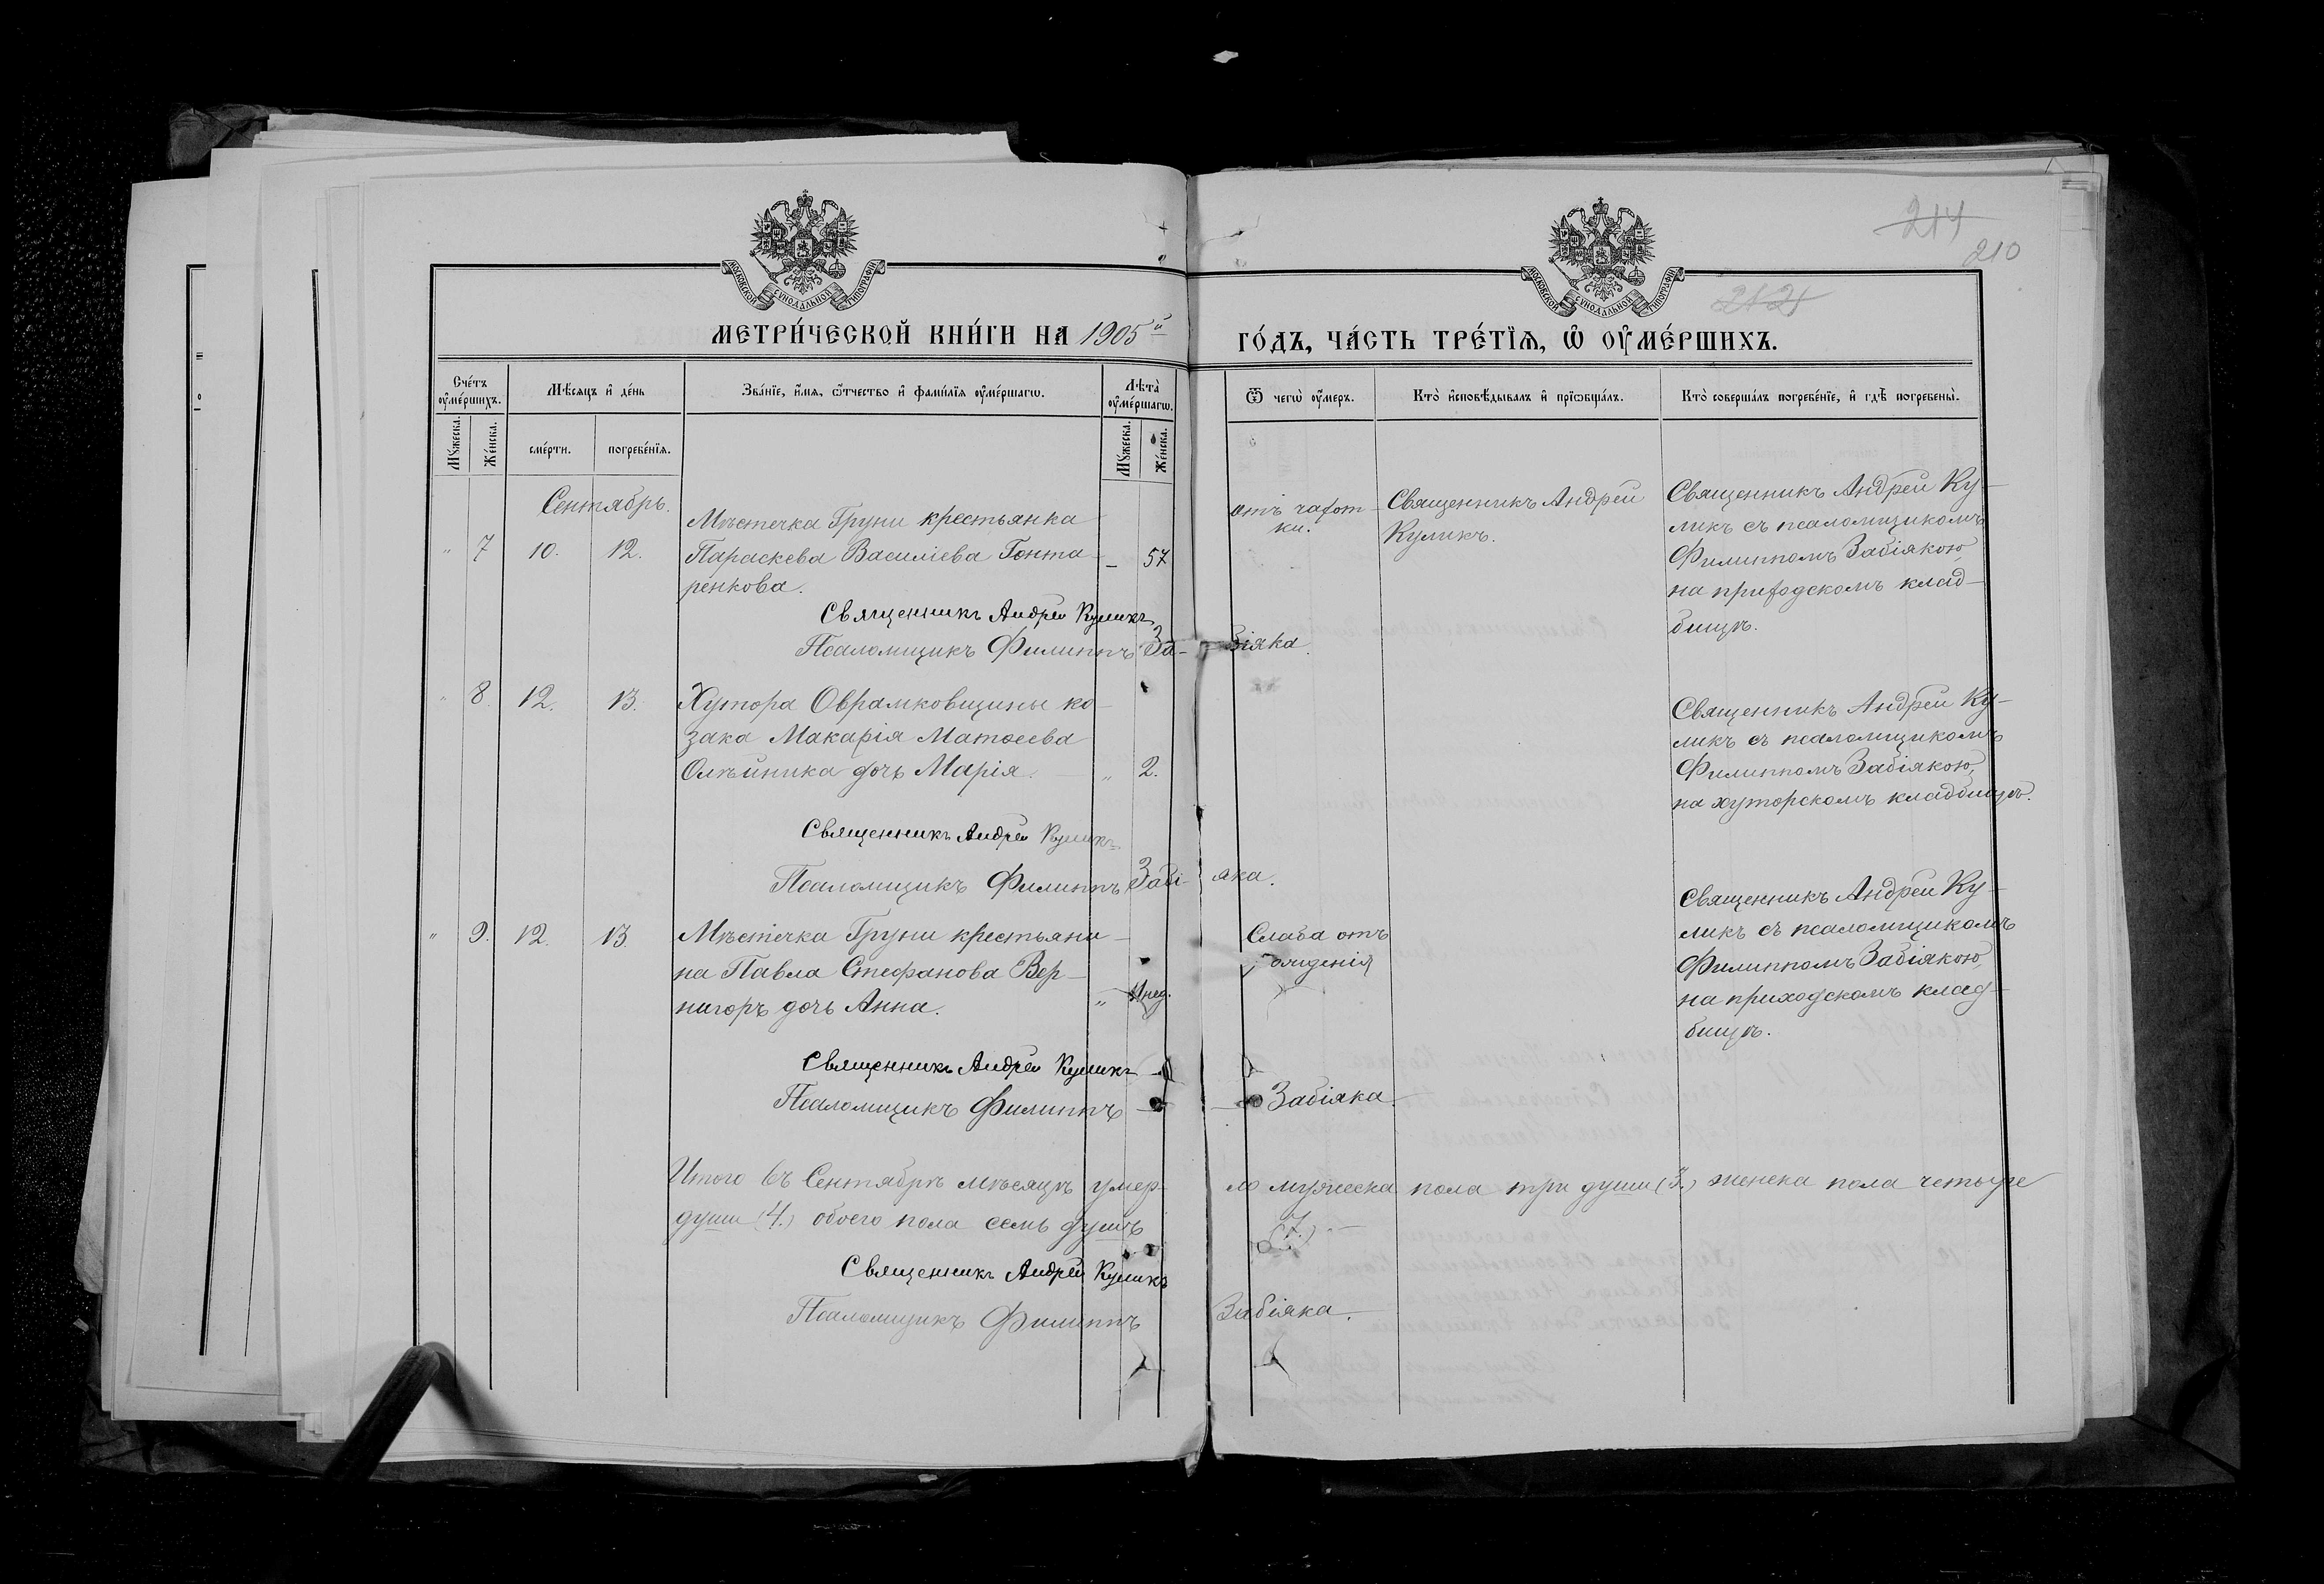 214
210
212
МОСКОВСКОЙ СУНОДАЛЬНОЙ ТИПОГРАФІИ
МОСКОВСКОЙ СУНОДАЛЬНОЙ ТИПОГРАФІИ
МЕТРИ́ЧЕСКОЙ КНИ́ГИ НА 1905й
ГО́ДЪ, ЧА́СТЬ ТРЕ́ТЇѦ, Ѡ҆ ОУ҆МЕ́РШИХЪ.
Сче́тъ оу҆ме́ршихъ.
Мѣ́сяцъ и҆ де́нь
Зва́нїе, и҆́мѧ, ѻ҆́тчество и҆ фами́лїѧ оу҆ме́ршагѡ.
Лѣта̀ оу҆ме́ршагѡ.
Ѿ чегѡ̀ оу҆́меръ.
Кто̀ и҆сповѣ́дывалъ и҆ прїѡбща́лъ.
Кто̀ соверша́лъ погребе́нїе, и҆ гдѣ̀ погребены̀.
Мꙋ́жеска.
Же́нска.
сме́рти.
погребе́нїѧ.
Мꙋ́жеска.
Же́нска.
Сентябрь.
Мѣстечка Груни крестьянка
" 7 10. 12. Параскева Василіева Гонта- – 57
ренкова.
отъ чахот-
ки.
Священникъ Андрей
Куликъ.
Священникъ Андрей Ку-
ликъ съ псаломщикомъ
Филиппомъ Забіякою,
на приходскомъ клад-
бищѣ.
Священникъ Андрей Куликъ
Псаломщикъ Филиппъ За- біяка.
" 8. 12. 13. Хутора Оврамковщины ко-
зака Макарія Матѳеева
Олѣйника дочь Марія. " 2.
Священникъ Андрей Ку-
ликъ съ псаломщикомъ
Филиппомъ Забіякою,
на хуторскомъ кладбищѣ.
Священникъ Андрей Куликъ.
Псаломщикъ Филиппъ Забі- яка.
" 9. 12. 13. Мѣстечка Груни крестьяни-
на Павла Стефанова Вер-
нигоръ дочь Анна. " нед.
Слаба отъ
рожденія
Священникъ Андрей Ку-
ликъ съ псаломщикомъ
Филиппомъ Забіякою,
на приходскомъ клад-
бищѣ.
Священникъ Андрей Куликъ
Псаломщикъ Филиппъ – Забіяка.
Итого въ Сентябрѣ мѣсяцѣ умер- ло мужеска пола три души (3.) женска пола четыре
души (4.) обоего пола семь душъ (7.) –
Священникъ Андрей Куликъ
Псаломщикъ Филиппъ Забіяка.